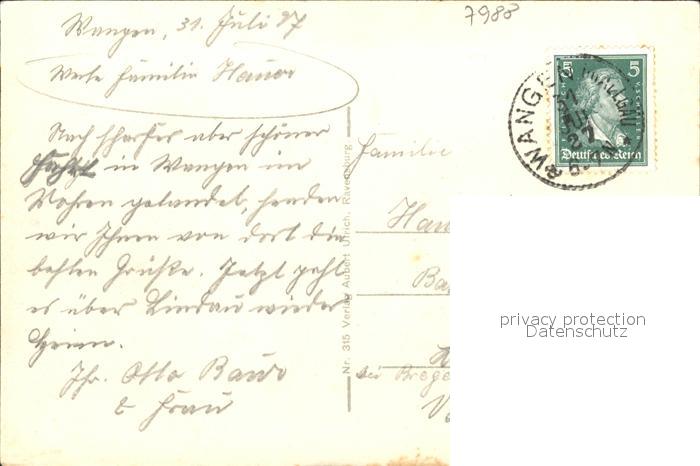 7988
Wangen, 31. Juli 27
Werte Familie Hauer
Nach scharfer aber schöner
Fahrt in Wangen im
gelandet, senden
wir Ihnen von dort die
besten Grüße. Jetzt geht
es über Lindau wieder
heim.
Ihr. Otto Baur
& Frau
Nr. 315 Verlag Aubert Ulrich, Ravensburg
Familie
Hau
Ba
bei Brege
V
WANGEN
27
5
Deutsches Reich
privacy protection
Datenschutz